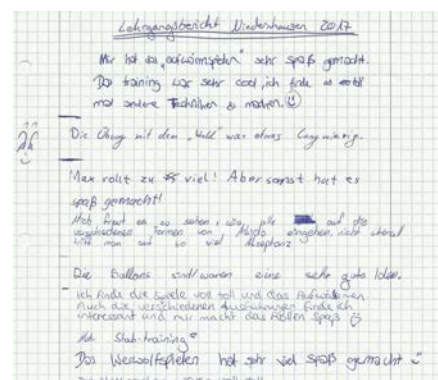 Lehrgangsbericht Niedernhausen 2017
Mir hat das „aufwärmspielen" sehr spaß gemacht.
Das training war sehr cool, ich finde es toll
mal andere Techniken zu machen. ☺
Die Übung mit dem „Wall" war etwas langwierig.
Max rollt zu viel! Aber sonst hat es
spaß gemacht!
Mich freut es zu sehen, wie alle auf die
verschiedenen Formen von eingehen, nicht überall
trifft man auf so viel Akzeptanz
Die Ballons sind/waren eine sehr gute Idee.
Ich finde die Spiele voll toll und das Aufwärmen.
Auch die verschiedenen Ausführungen finde ich
interessant und mir macht das Rollen Spaß ☺
Stab-training
Das Werwolfspielen hat sehr viel spaß gemacht ☺